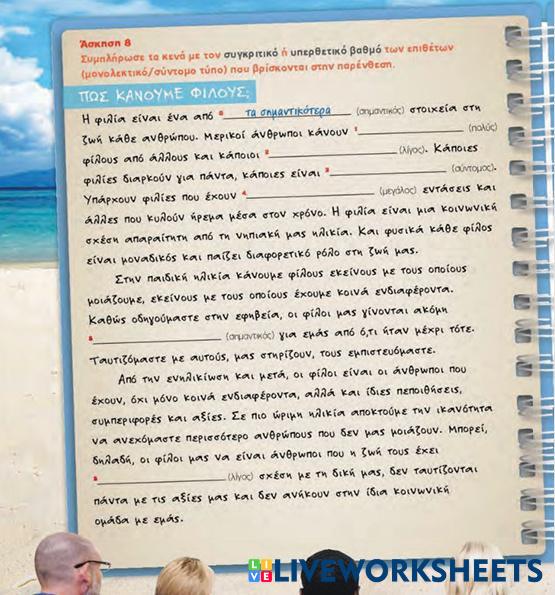 Άσκηση 8
Συμπλήρωσε τα κενά με τον συγκριτικό ή υπερθετικό βαθμό των επιθέτων
(μονολεκτικό/σύντομο τύπο) που βρίσκονται στην παρένθεση.
ΠΩΣ ΚΑΝΟΥΜΕ ΦΙΛΟΥΣ;
Η φιλία είναι ένα από 0 τα σημαντικότερα (σημαντικός) στοιχεία στη
ζωή κάθε ανθρώπου. Μερικοί άνθρωποι κάνουν 1 (πολύς)
φίλους από άλλους και κάποιοι 2 (λίγος). Κάποιες
φιλίες διαρκούν για πάντα, κάποιες είναι 3 (σύντομος).
Υπάρχουν φιλίες που έχουν 4 (μεγάλος) εντάσεις και
άλλες που κυλούν ήρεμα μέσα στον χρόνο. Η φιλία είναι μια κοινωνική
σχέση απαραίτητη από τη νηπιακή μας ηλικία. Και φυσικά κάθε φίλος
είναι μοναδικός και παίζει διαφορετικό ρόλο στη ζωή μας.
Στην παιδική ηλικία κάνουμε φίλους εκείνους με τους οποίους
μοιάζουμε, εκείνους με τους οποίους έχουμε κοινά ενδιαφέροντα.
Καθώς οδηγούμαστε στην εφηβεία, οι φίλοι μας γίνονται ακόμη
(σημαντικός) για εμάς από ό,τι ήταν μέχρι τότε.
Ταυτιζόμαστε με αυτούς, μας στηρίζουν, τους εμπιστευόμαστε.
Από την ενηλικίωση και μετά, οι φίλοι είναι οι άνθρωποι που
έχουν, όχι μόνο κοινά ενδιαφέροντα, αλλά και ίδιες πεποιθήσεις,
συμπεριφορές και αξίες. Σε πιο ώριμη ηλικία αποκτούμε την ικανότητα
να ανεχόμαστε περισσότερο ανθρώπους που δεν μας μοιάζουν. Μπορεί,
δηλαδή, οι φίλοι μας να είναι άνθρωποι που η ζωή τους έχει
(λίγος) σχέση με τη δική μας, δεν ταυτίζονται
πάντα με τις αξίες μας και δεν ανήκουν στην ίδια κοινωνική
ομάδα με εμάς.
LIVE LIVEWORKSHEETS